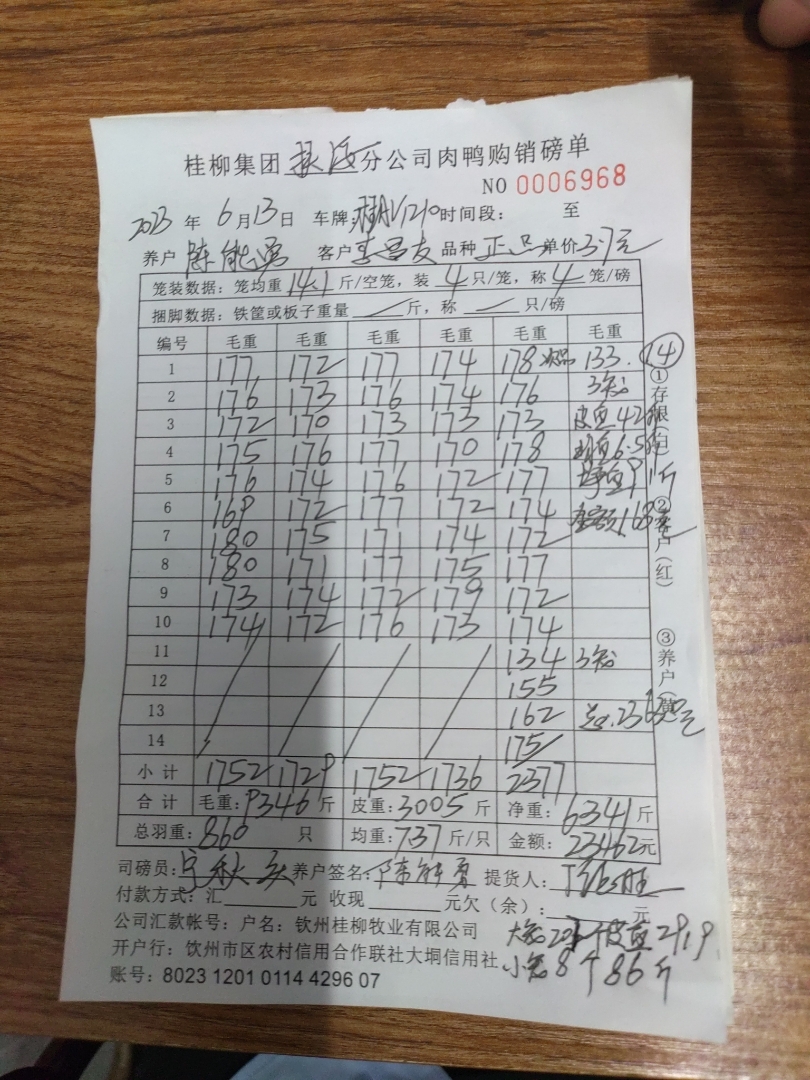 桂柳集团 分公司肉鸭购销磅单
NO 0006968
2023 年 6 月 13 日 车牌: 1210 时间段: 至
养户 陈能勇 客户 李昌友 品种 正品 单价 3.7元
笼装数据:笼均重 14.1 斤/空笼,装 4 只/笼,称 4 笼/磅
捆脚数据:铁筐或板子重量 / 斤,称 / 只/磅
编号 毛重 毛重 毛重 毛重 毛重 毛重
1 177 172 177 174 178 次品 133. 14
2 176 173 176 174 176 3笼
3 172 170 173 173 173 皮重42
4 175 176 177 170 178 6.5
5 176 174 176 172 177 净重91斤
6 169 172 177 172 174 金额168
7 180 175 171 174 172
8 180 171 177 175 177
9 173 174 172 179 172
10 174 172 176 173 174
11 134 3笼
12 155
13 162 总:23630元
14 175
小计 1752 1729 1752 1736 2377
合计 毛重:9346 斤 皮重:3005 斤 净重:6341 斤
总羽重:860 只 均重:7.37 斤/只 金额:23462元
司磅员: 养户签名:陈能勇 提货人:
付款方式:汇 元 收现 元欠(余): 元
公司汇款帐号:户名:钦州桂柳牧业有限公司
开户行:钦州市区农村信用合作联社大垌信用社
账号:8023 1201 0114 4296 07
大笼 个皮重2919
小笼8个86斤
①存根(白)
②客户(红)
③养户(黄)